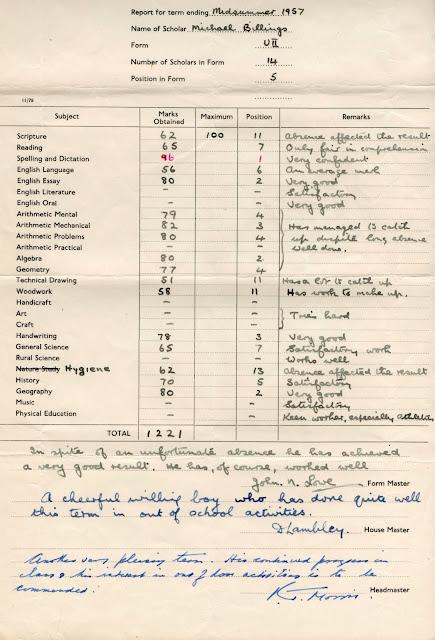 Report for term ending Midsummer 1957
Name of Scholar Michael Billings
Form U II
Number of Scholars in Form 14
Position in Form 5
11/78
Subject Marks Obtained Maximum Position Remarks
Scripture 62 100 11 Absence affected the result
Reading 65 7 Only fair in comprehension
Spelling and Dictation 96 1 Very confident
English Language 56 6 An average mark
English Essay 80 2 Very good
English Literature – – Satisfactory
English Oral – – Very good
Arithmetic Mental 79 4
Arithmetic Mechanical 82 3 Has managed to catch
Arithmetic Problems 80 4 up despite long absence
Arithmetic Practical – – Well done.
Algebra 80 2
Geometry 77 4
Technical Drawing 51 11 Has a lot to catch up
Woodwork 58 11 Has work to make up.
Handicraft – –
Art – – Tries hard
Craft – –
Handwriting 78 3 Very good
General Science 65 7 Satisfactory work
Rural Science – – Works well
Nature Study Hygiene 62 13 Absence affected the result
History 70 5 Satisfactory
Geography 80 2 Very good
Music – Satisfactory
Physical Education – Keen worker, especially athletics
TOTAL 1221
In spite of an unfortunate absence he has achieved
a very good result. He has, of course, worked well
John. N. Lowe Form Master
A cheerful willing boy who has done quite well
this term in out of school activities.
D Lambley. House Master
Another very pleasing term. His continued progress in
class & his interest in out of door activities is to be
commended.
K. Morris. Headmaster